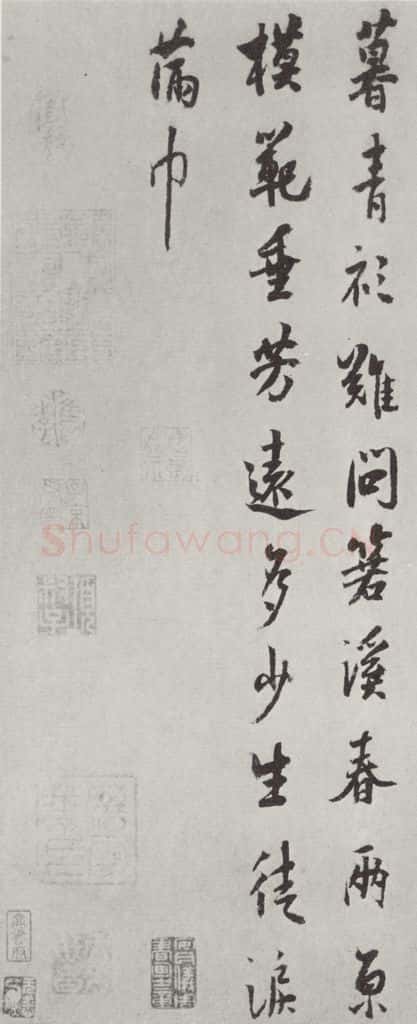 暮青衫難問箬溪春兩京
模範垂芳遠多少生徒淚
滿巾
Shufawang.CN